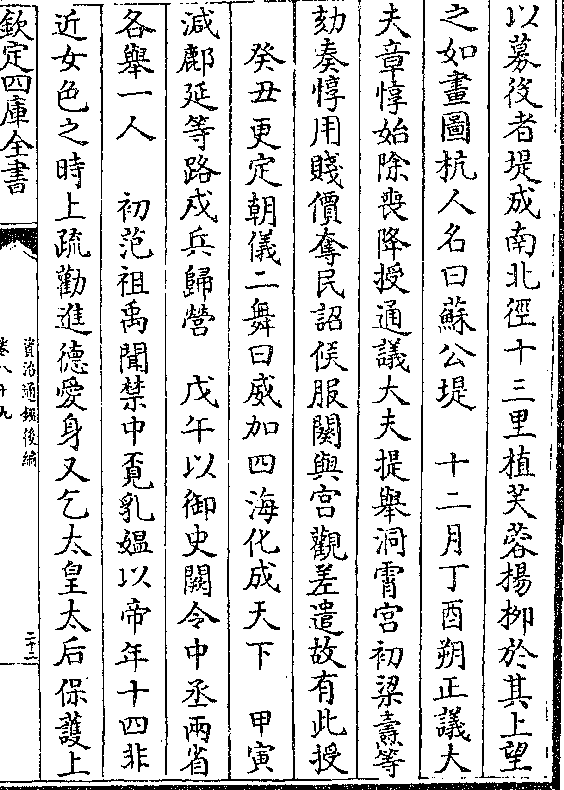 以募役者堤成南北徑十三里植芙蓉揚柳於其上望
之如畫圖杭人名曰蘇公堤　十二月丁酉朔正議大
夫章惇始除喪降授通議大夫提舉洞霄宮初梁燾等
劾奏惇用賤價奪民詔候服闋與宮觀差遣故有此授
癸丑更定朝儀二舞曰威加四海化成天下　甲寅
減鄜延等路戍兵歸營　戊午以御史闕令中丞兩省
各舉一人　初范祖禹聞禁中覔乳媪以帝年十四非
近女色之時上疏勸進德愛身又乞太皇太后保護上
欽定四庫全書
資治通鑑後編
卷八十九
二十二